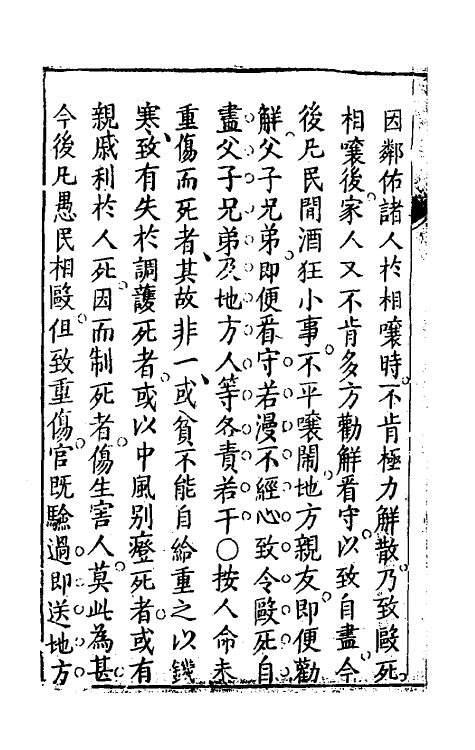 因鄰佑諸人於相嚷時不肯極力解散乃致毆死
相嚷後家人又不肯多方勸解看守以致自盡今
後凡民間酒狂小事不平嚷鬧地方親友即便勸
解父子兄弟即便看守若漫不經心致令毆死自
盡父子兄弟及地方人等各責若干○按人命未
重傷而死者其故非一或貧不能自給重之以饑
寒致有失於調護死者或以中風别瘂死者或有
親戚利於人死因而制死者傷生害人莫此為甚
今後凡愚民相毆但致重傷官既驗過即送地方